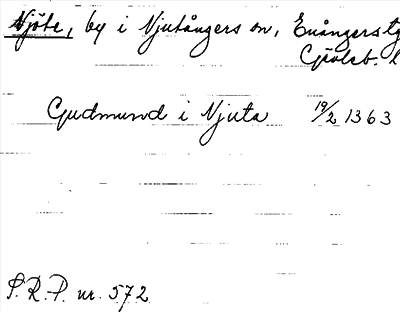 Njöte, by i Njutångers sn, Enångers tg
Gävleb. l
Gudmund i Njuta 19/2 1363
S.R.P. nr. 572